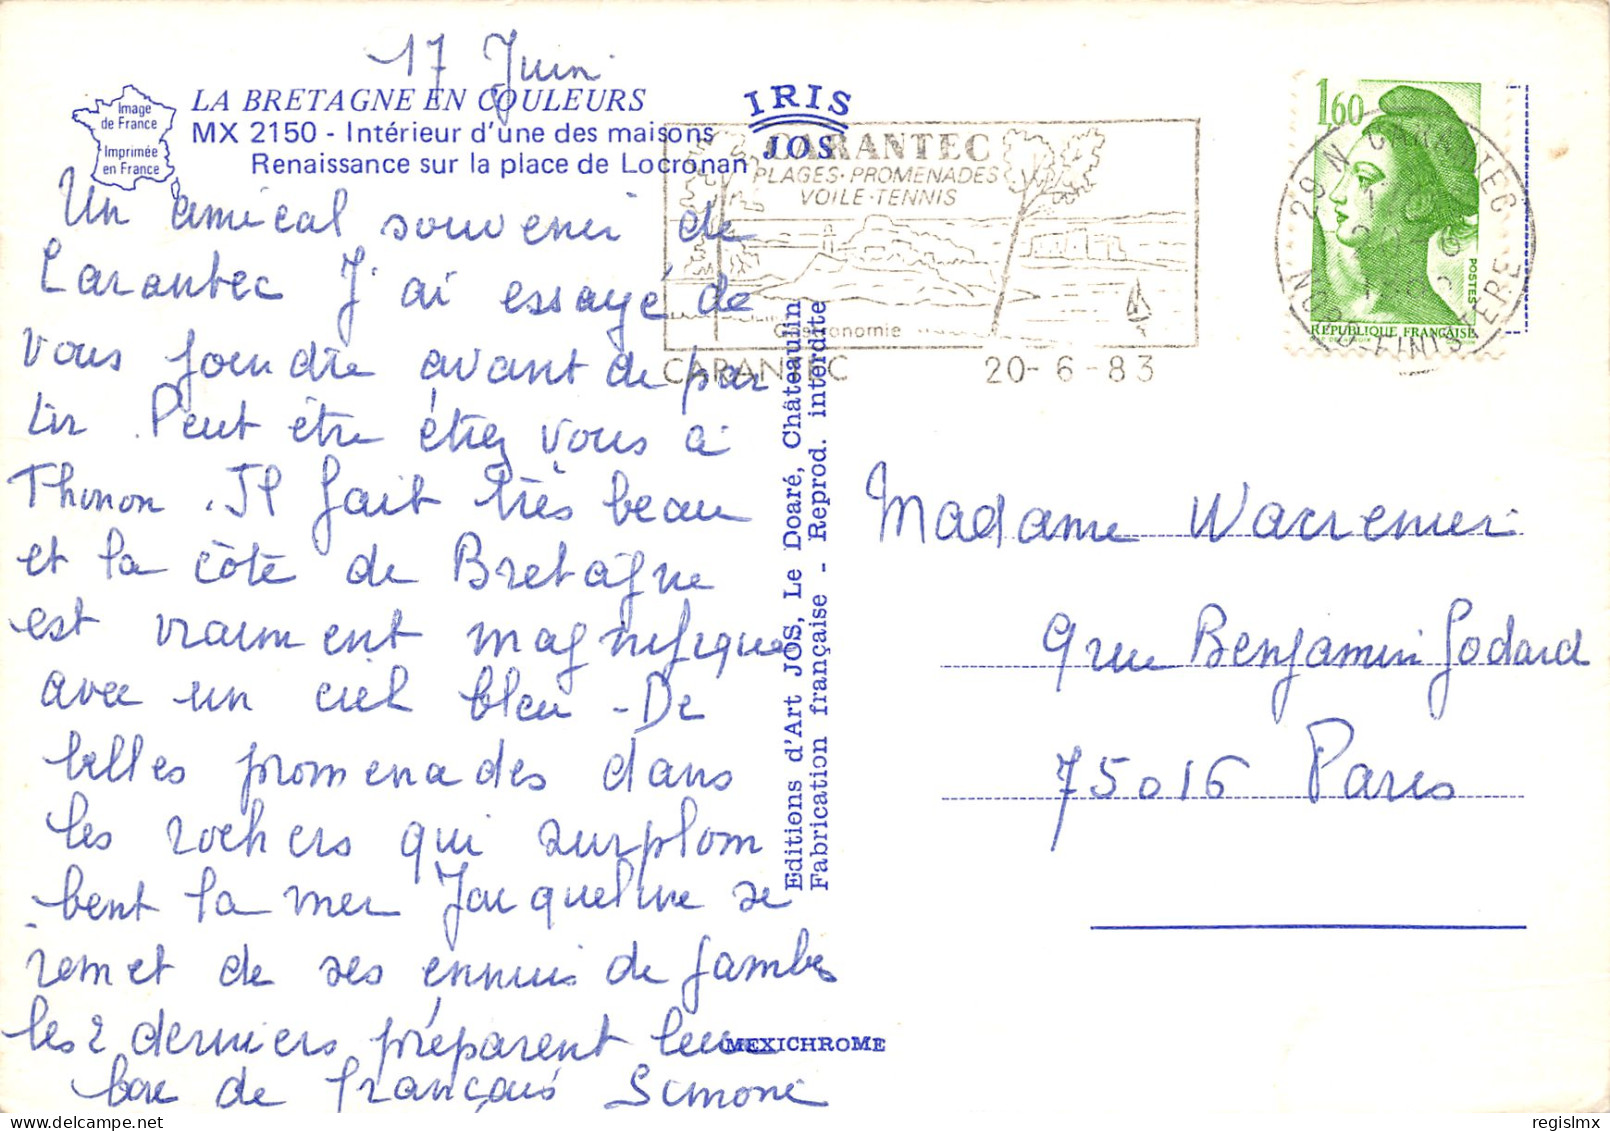 17 Juin
LA BRETAGNE EN COULEURS
MX 2150 - Intérieur d'une des maisons
Renaissance sur la place de Locronan
Image
de France
Imprimée
en France
IRIS
JOS
Un amical souvenir de
Carantec J'ai essayé de
vous joindre avant de par
tir. Peut être étiez vous à
Thonon. Il fait très beau
et la côte de Bretagne
est vraiment magnifique
avec un ciel bleu - De
belles promenades dans
les rochers qui surplom
bent la mer Jacqueline se
remet de ses ennuis de jambes
les 2 derniers préparent leur
bac de français Simone
Editions d'Art JOS, Le Doaré, Châteaulin
Fabrication française - Reprod. interdite
MEXICHROME
CARANTEC
PLAGES-PROMENADES
VOILE-TENNIS
Gastronomie
CARANTEC 20-6-83
29 N CARANTEC
NORD-FINISTERE
1,60
POSTES
REPUBLIQUE FRANÇAISE
Madame Wacrenier
9 rue Benjamin Godard
75016 Paris
regislmx